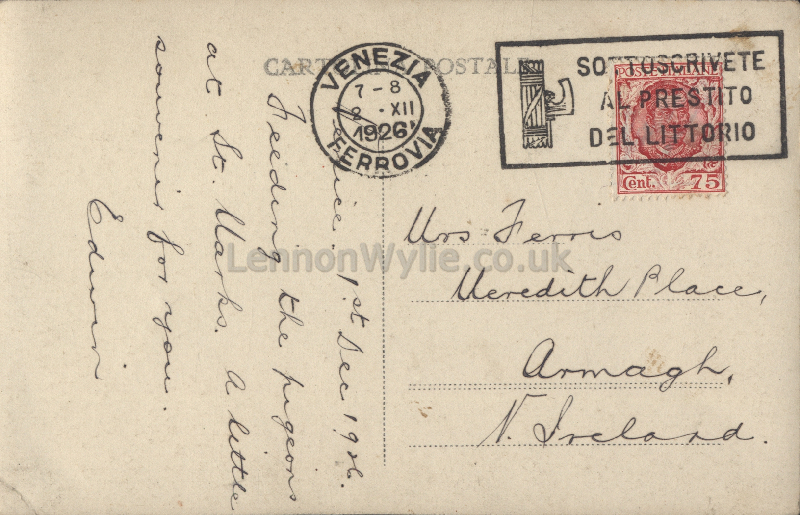 CARTOLINA POSTALE
VENEZIA
7-8
2 . XII
1926
FERROVIA
SOTTOSCRIVETE
AL PRESTITO
DEL LITTORIO
POSTE ITALIANE
Cent. 75
Venice. 1st Dec 1926.
Feeding the pigeons
at St. Marks. A little
souvenir for you.
Edwin
Mrs Ferris
Meredith Place,
Armagh,
N. Ireland.
LennonWylie.co.uk